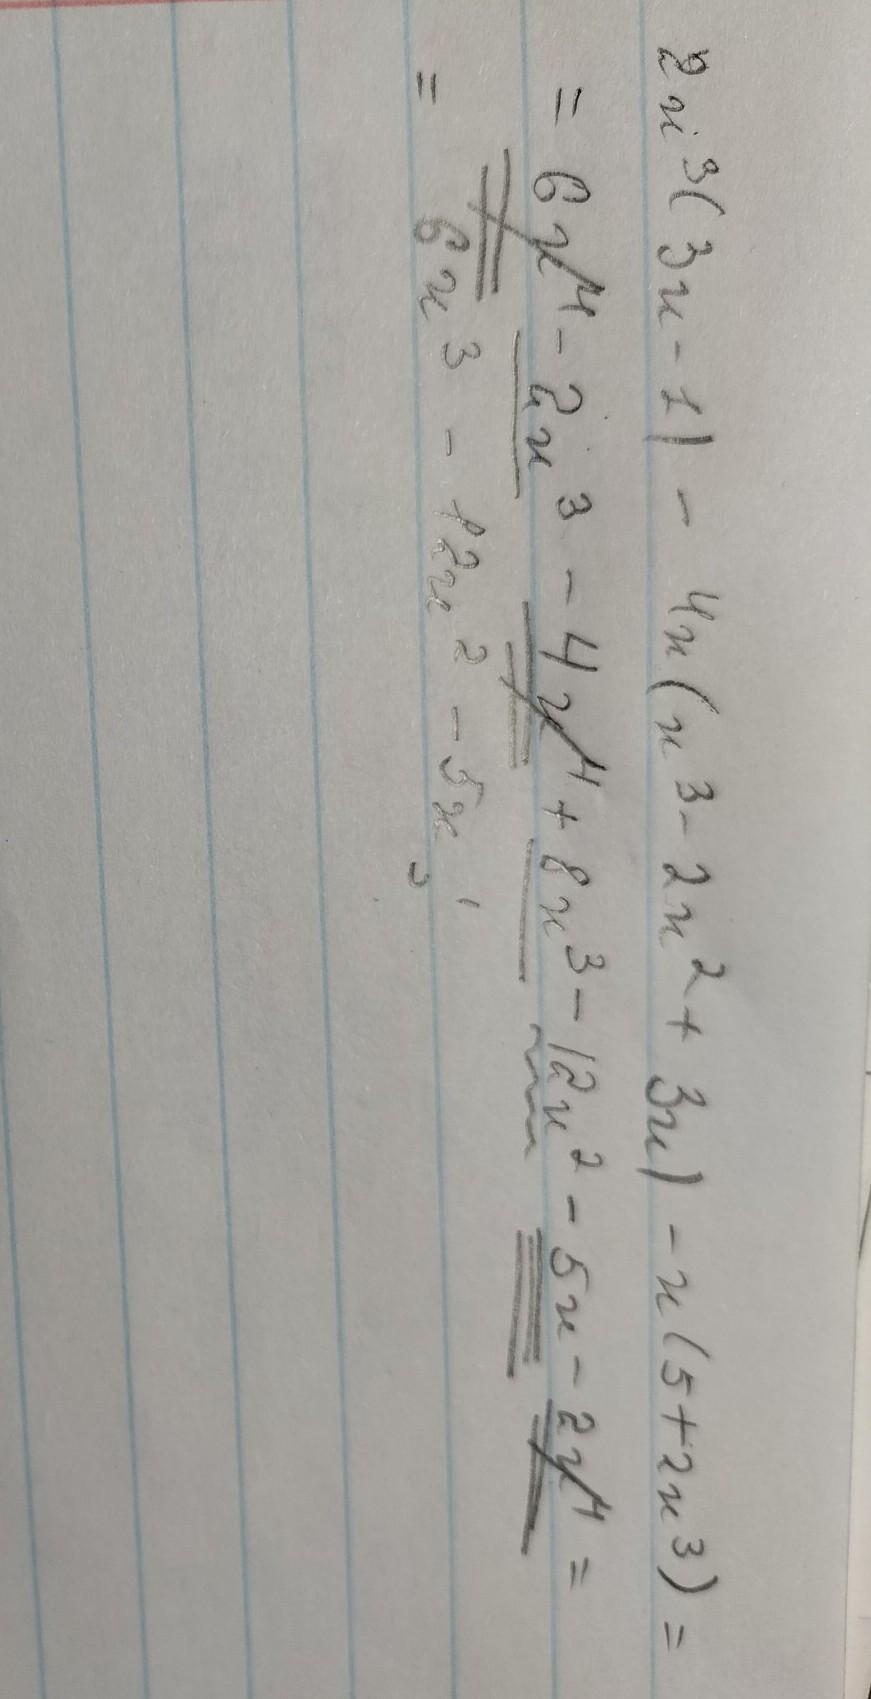 2x³(3x-1) - 4x(x³-2x²+3x) - x(5+2x³) =
= 6x⁴ - 2x³ - 4x⁴ + 8x³ - 12x² - 5x - 2x⁴ =
= 6x³ - 12x² - 5x